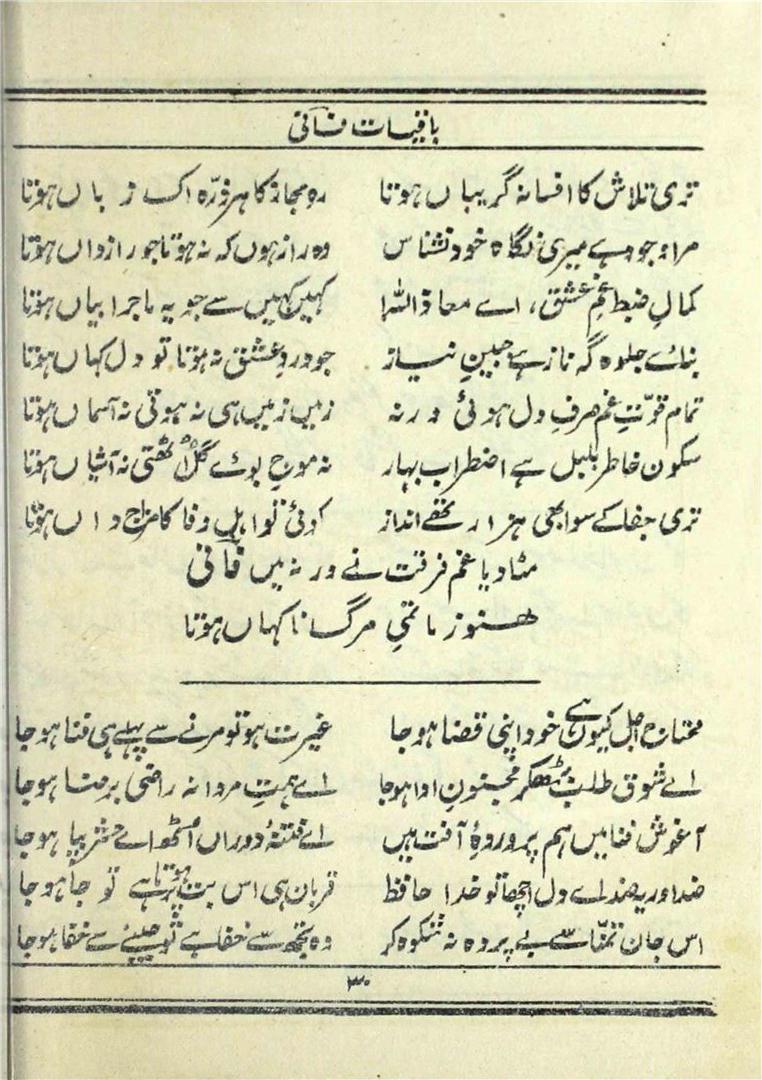 باقیات فانی
تری تلاش کا افسانہ گریباں ہوتا رہ مجاز کا ہر ذرّہ اک زباں ہوتا
مرا وجود ہے میری نگاہ خودنشناس وہ راز ہوں کہ نہ ہوتا جو رازداں ہوتا
کمالِ ضبطِ غمِ عشق، اے معاذ اللہ! کہیں کہیں سے جو یہ ماجرا بیاں ہوتا
بنائے جلوہ گہ ناز ہے جبینِ نیاز جو دردِ عشق نہ ہوتا تو دل کہاں ہوتا
تمام قوّتِ غم صرفِ دل ہوئی ورنہ زمیں زمیں ہی نہ ہوتی نہ آسماں ہوتا
سکون خاطر بلبل ہے اضطراب بہار نہ موجِ بوئے گل اُٹھتی نہ آشیاں ہوتا
تری جفا کے سوا بھی ہزار تھے انداز کوئی تو اہلِ وفا کا مزاج داں ہوتا
مٹا دیا غم فرقت نے ورنہ میں فانی
ھنوز ماتمیِ مرگ ناکہاں ہوتا
محتاج اجل کیوں ہے خود اپنی قضا ہوجا غیرت ہو تو مرنے سے پہلے ہی فنا ہوجا
اے شوق طلب بڑھکر مجنونِ ادا ہوجا اے ہمتِ مردانہ راضی برضا ہوجا
آغوش فنا میں ہم پروردۂ آفت ہیں اے فتنۂ دوراں اُٹھ اے حشر بپا ہوجا
ضد اور یہ ضد اے دل اچھا تو خدا حافظ قرباں ہی اس بت پر ہوتا ہے تو جا ہوجا
اس جان تمنّا سے بے پردہ نہ شکوہ کر وہ تجھ سے خفا ہے تو جینے سے خفا ہوجا
۳۰